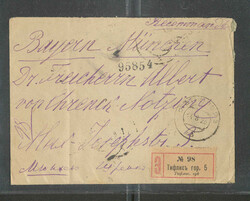 Recommandé
Bayern München
95854
Dr. Freiherrn Albert
von Schrenck Notzing
Max Josephstr. 3
Мюнхен
№ 98
Тифлисъ гор. 5